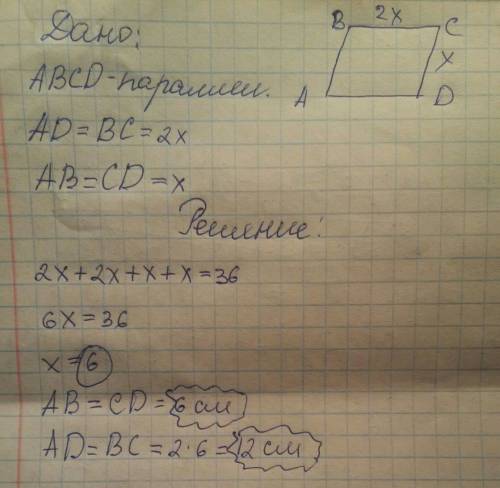 Дано:
ABCD-параллел.
AD=BC=2x
AB=CD=x
B 2x C
x
A D
Решение:
2x+2x+x+x=36
6x=36
x=6
AB=CD=6 см
AD=BC=2·6=12 см